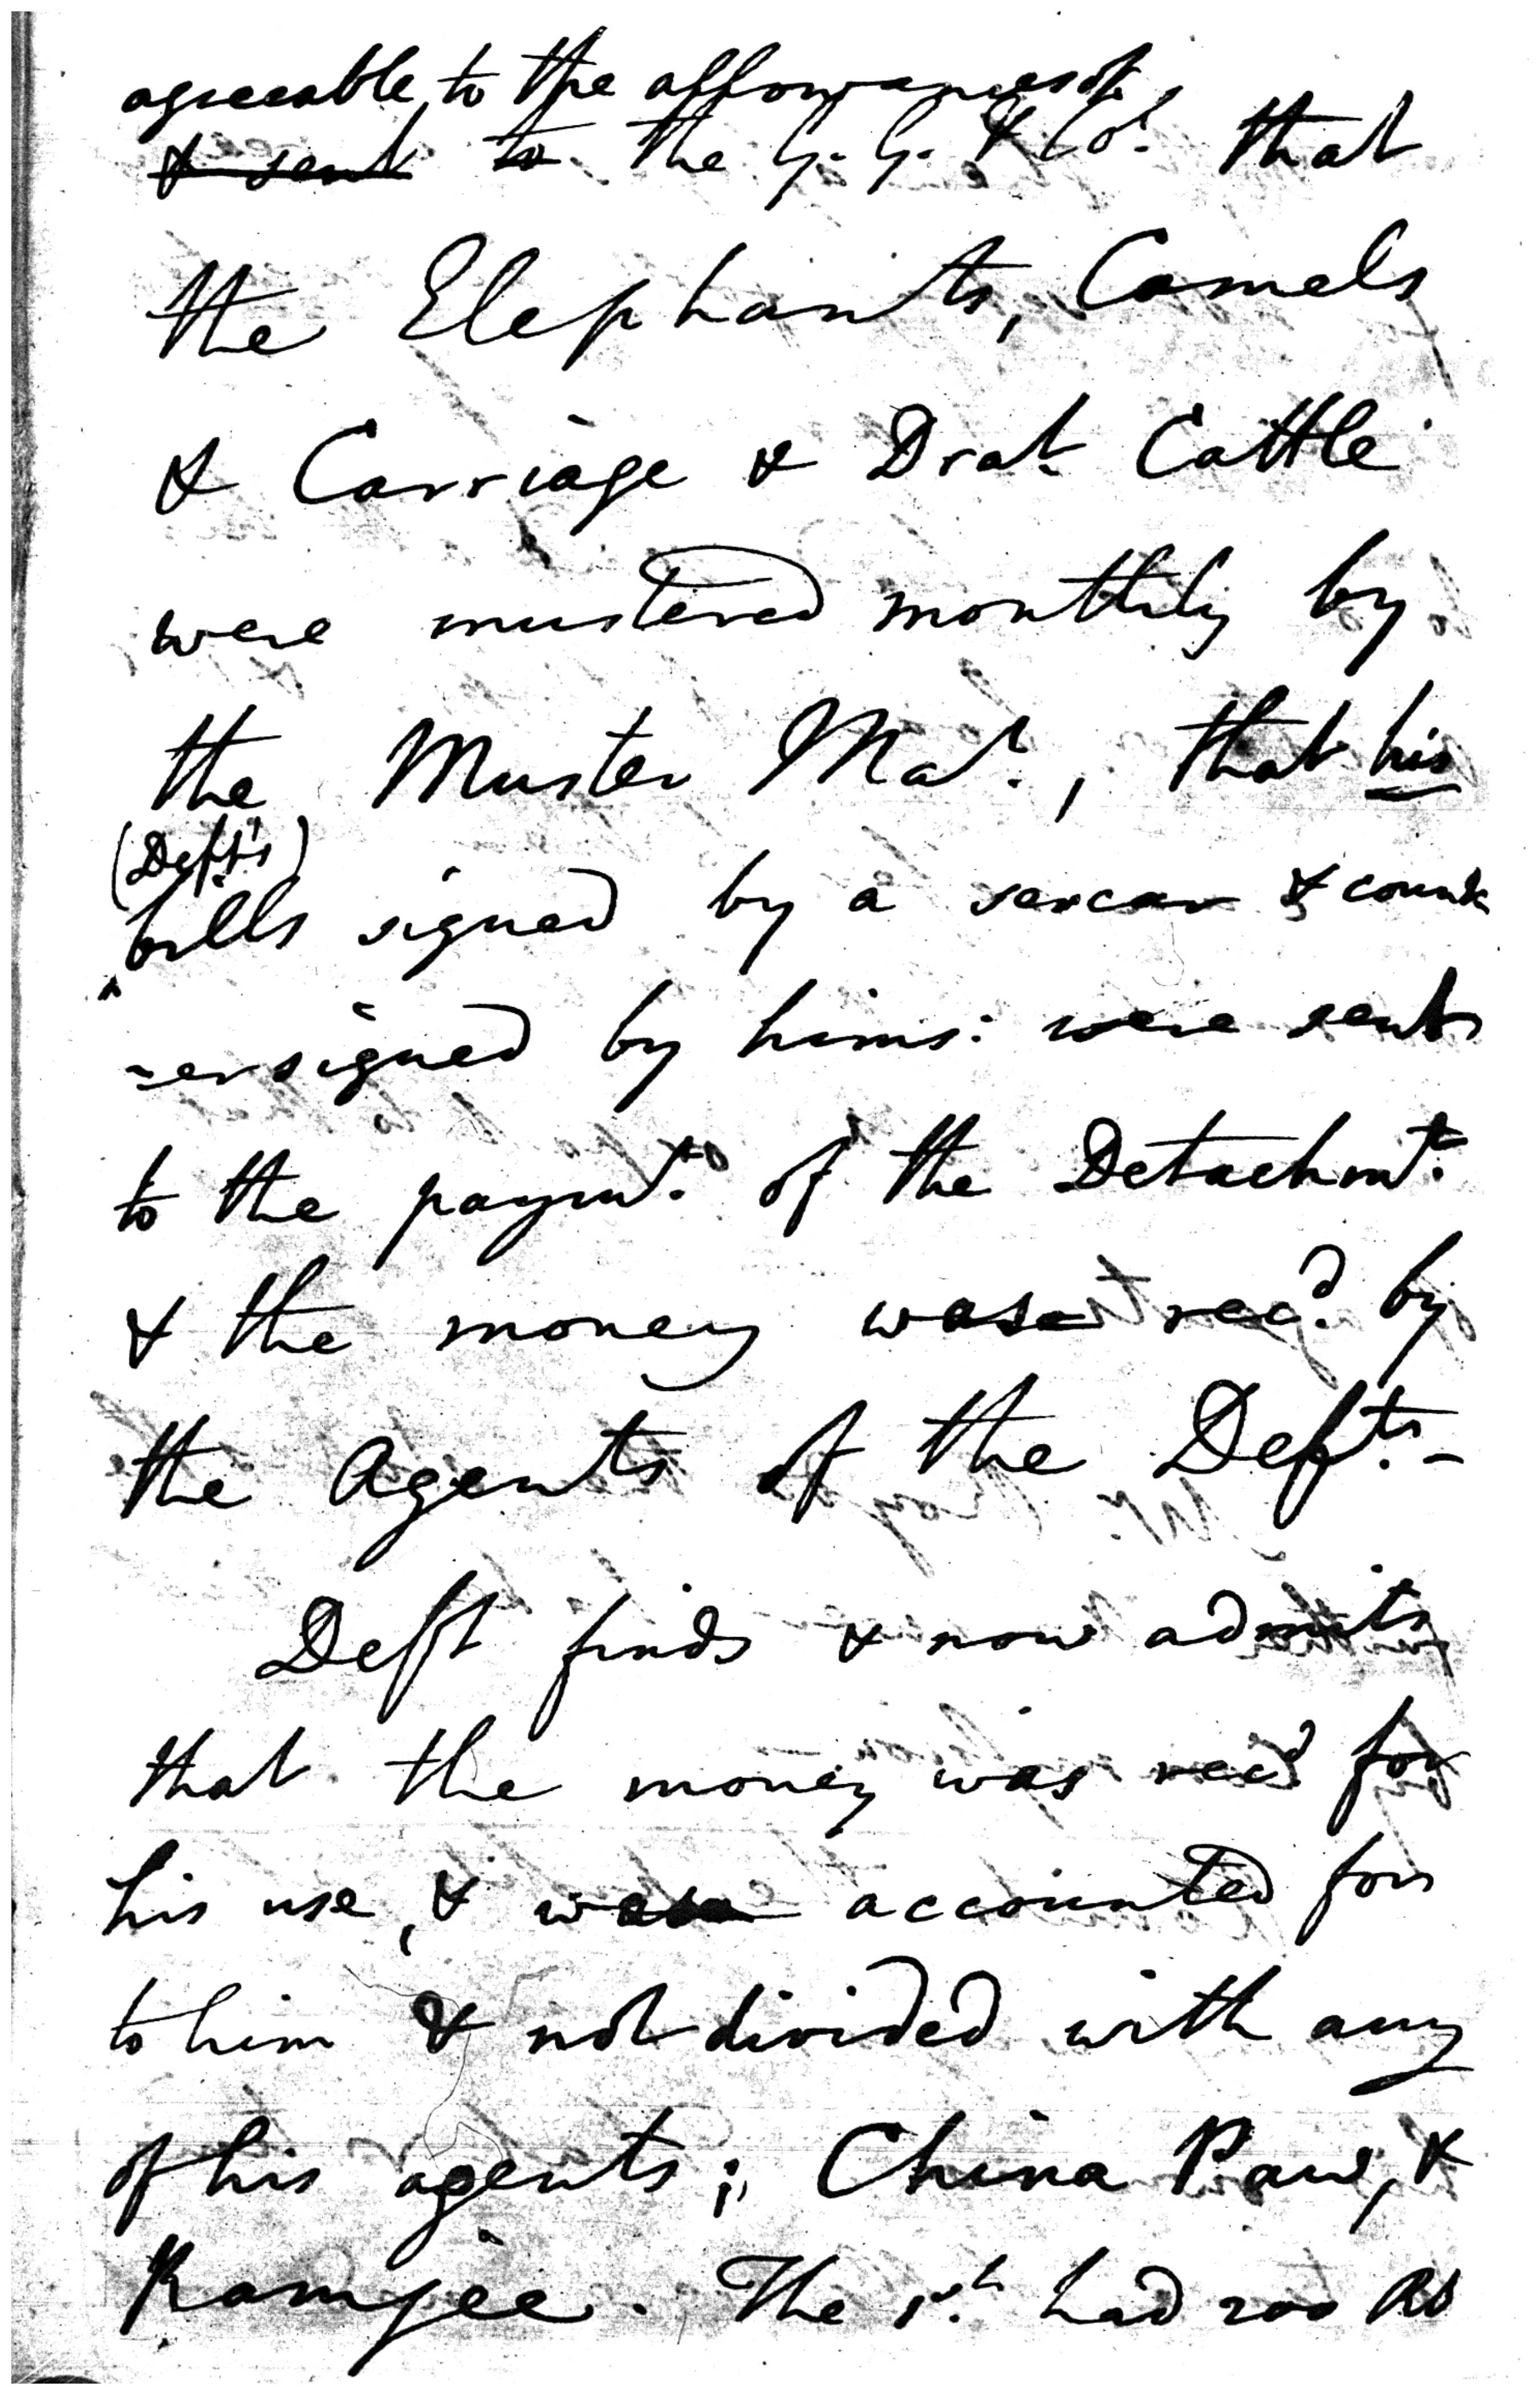 agreeable to the allowances of
& sent to the G. G. & Col. that
the Elephants, Camels
& Carriage & Drat. Cattle
were mustered monthly by
the Muster Mar., that his
(Deft's)
bills signed by a sercar & count
-ersigned by hims: were sent
to the paymr. of the Detachmt.
& the money was recd. by
the Agents of the Defts. -
Deft finds & now admits
that the money was recd for
his use, & was accounted for
to him & not divided with any
of his agents; China Paw, &
Ramjee. The 1st. had 200 Rs